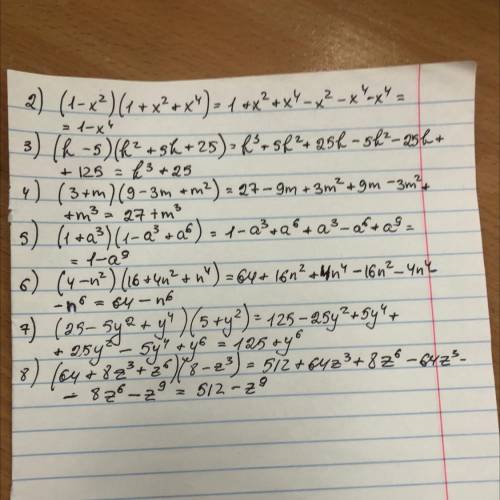 2) (1-x²)(1+x²+x⁴) = 1+x²+x⁴-x²-x⁴-x⁴=
= 1-x⁴
3) (k-5)(k²+5k+25)=k³+5k²+25k-5k²-25k+
+125 = k³+25
4) (3+m)(9-3m+m²)=27-9m+3m²+9m-3m²+
+m³ = 27+m³
5) (1+a³)(1-a³+a⁶) = 1-a³+a⁶+a³-a⁶+a⁹=
= 1-a⁹
6) (4-n²)(16+4n²+n⁴)=64+16n²+4n⁴-16n²-4n⁴
-n⁶ = 64-n⁶
7) (25-5y²+y⁴)(5+y²)=125-25y²+5y⁴+
+25y²-5y⁴+y⁶ = 125+y⁶
8) (64+8z³+z⁶)(8-z³)=512+64z³+8z⁶-64z³-
- 8z⁶-z⁹ = 512-z⁹